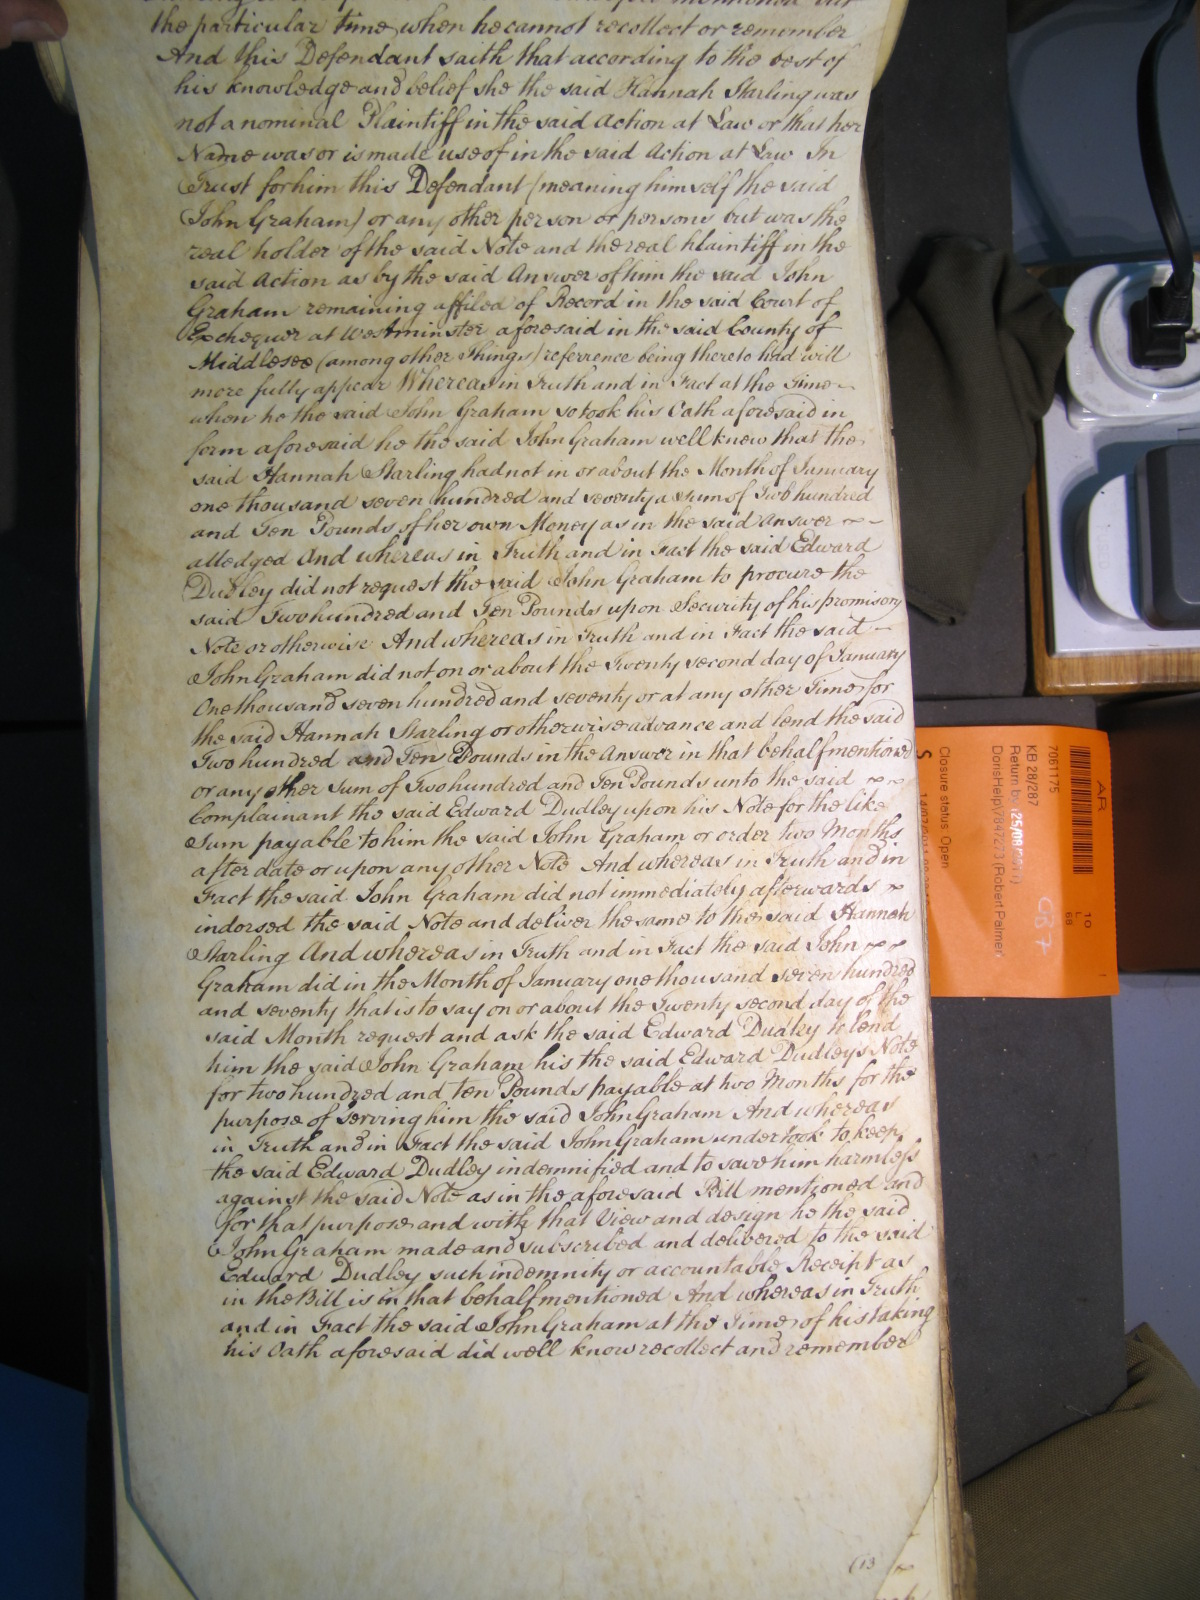 the particular time when he cannot recollect or remember
And this Defendant saith that according to the best of
his knowledge and belief she the said Hannah Starling was
not a nominal Plaintiff in the said Action at Law or that her
Name was or is made use of in the said Action at Law In
Trust for him this Defendant (meaning himself the said
John Graham) or any other person or persons but was the
real holder of the said Note and the real plaintiff in the
said Action as by the said Answer of him the said John
Graham remaining affiled of Record in the said Court of
Exchequer at Westminster aforesaid in the said County of
Middlesex (among other Things) referrence being thereto had will
more fully appear Whereas in Truth and in Fact at the Time
when he the said John Graham so took his Oath aforesaid in
form aforesaid he the said John Graham well knew that the
said Hannah Starling had not in or about the Month of January
one thousand seven hundred and seventy a sum of Two hundred
and Ten Pounds of her own Money as in the said Answer
alledged And whereas in Truth and in Fact the said Edward
Dudley did not request the said John Graham to procure the
said Two hundred and Ten Pounds upon Security of his promisory
Note or otherwise And whereas in Truth and in Fact the said
John Graham did not on or about the Twenty second day of January
One thousand seven hundred and seventy or at any other Time for
the said Hannah Starling or otherwise advance and lend the said
Two hundred and Ten Pounds in the Answer in that behalf mentioned
or any other Sum of Two hundred and Ten Pounds unto the said
Complainant the said Edward Dudley upon his Note for the like
Sum payable to him the said John Graham or order two Months
after date or upon any other Note And whereas in Truth and in
Fact the said John Graham did not immediately afterwards
indorsed the said Note and deliver the same to the said Hannah
Starling And whereas in Truth and in Fact the said John
Graham did in the Month of January one thousand seven hundred
and seventy that is to say on or about the Twenty second day of the
said Month request and ask the said Edward Dudley to lend
him the said John Graham his the said Edward Dudley's Note
for two hundred and ten Pounds payable at two Months for the
purpose of serving him the said John Graham And whereas
in Truth and in Fact the said John Graham undertook to keep
the said Edward Dudley indemnified and to save him harmless
against the said Note as in the aforesaid Bill mentioned and
for that purpose and with that View and design he the said
John Graham made and subscribed and delivered to the said
Edward Dudley such indemnity or accountable Receipt as
in the Bill is in that behalf mentioned And whereas in Truth
and in Fact the said John Graham at the Time of his taking
his Oath aforesaid did well know recollect and remember
(13
AR
7061175
KB 28/287
Return by (25/08/2011)
DorisHelp/784723 (Robert Palmer)
Closure status: Open
S
10
L
68